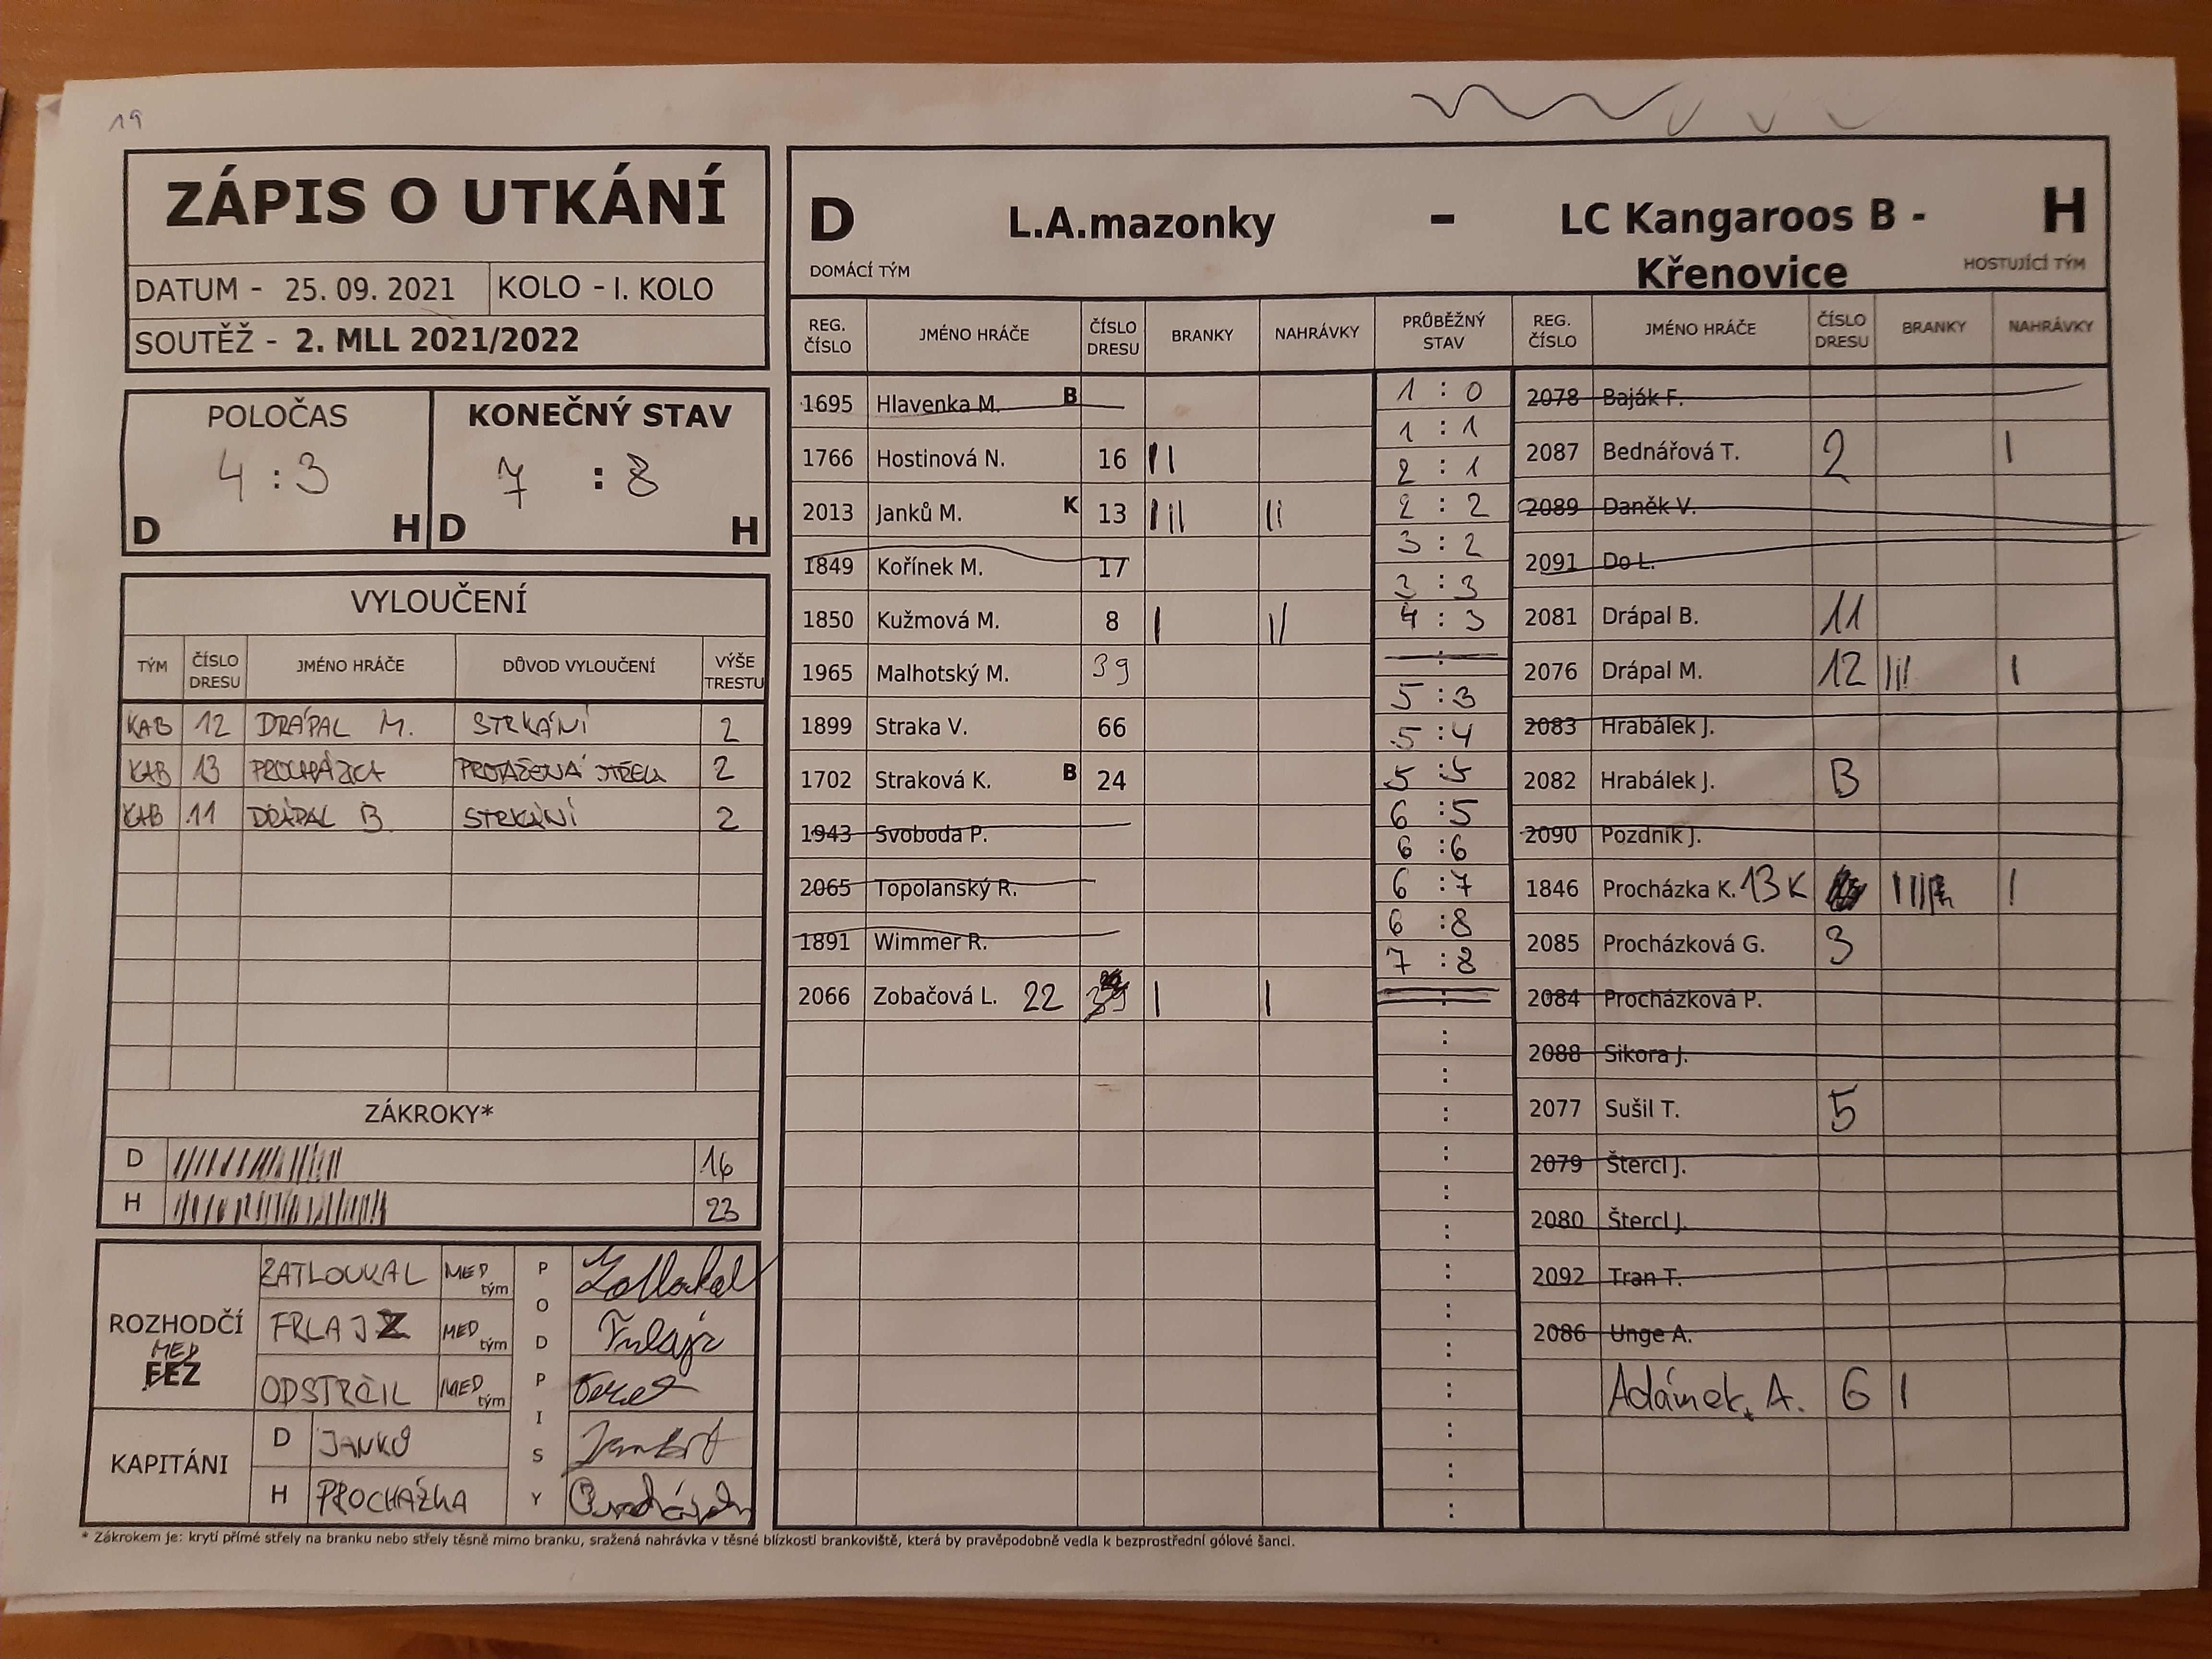 19
ZÁPIS O UTKÁNÍ
DATUM - 25. 09. 2021 KOLO - I. KOLO
SOUTĚŽ - 2. MLL 2021/2022
POLOČAS KONEČNÝ STAV
4 : 3 7 : 8
D H D H
VYLOUČENÍ
TÝM ČÍSLO DRESU JMÉNO HRÁČE DŮVOD VYLOUČENÍ VÝŠE TRESTU
KAB 12 DRÁPAL M. STRKÁNÍ 2
KAB 13 PROCHÁZKA PROTAŽENÁ STŘELA 2
KAB 11 DRÁPAL B. STRKÁNÍ 2
ZÁKROKY*
D 16
H 23
ROZHODČÍ
MED
ZATLOUKAL MED tým
FRLAJZ MED tým
ODSTRČIL MED tým
KAPITÁNI
D JANKŮ
H PROCHÁZKA
PODPISY
D L.A.mazonky - LC Kangaroos B - Křenovice H
DOMÁCÍ TÝM HOSTUJÍCÍ TÝM
REG. ČÍSLO JMÉNO HRÁČE ČÍSLO DRESU BRANKY NAHRÁVKY PRŮBĚŽNÝ STAV REG. ČÍSLO JMÉNO HRÁČE ČÍSLO DRESU BRANKY NAHRÁVKY
1695 Hlavenka M. B
1766 Hostinová N. 16 II
2013 Janků M. K 13 III II
1849 Kořínek M. 17
1850 Kužmová M. 8 I II
1965 Malhotský M. 39
1899 Straka V. 66
1702 Straková K. B 24
1943 Svoboda P.
2065 Topolanský R.
1891 Wimmer R.
2066 Zobačová L. 22 I I
1 : 0
1 : 1
2 : 1
2 : 2
3 : 2
3 : 3
4 : 3
5 : 3
5 : 4
5 : 5
6 : 5
6 : 6
6 : 7
6 : 8
7 : 8
2078 Baják F.
2087 Bednářová T. 2 I
2089 Daněk V.
2091 Do L.
2081 Drápal B. 11
2076 Drápal M. 12 III I
2083 Hrabálek J.
2082 Hrabálek J. B
2090 Pozdník J.
1846 Procházka K. 13 K IIII I
2085 Procházková G. 3
2084 Procházková P.
2088 Sikora J.
2077 Sušil T. 5
2079 Štercl J.
2080 Štercl J.
2092 Tran T.
2086 Unge A.
Adámek, A. 6 I
* Zákrokem je: krytí přímé střely na branku nebo střely těsně mimo branku, sražená nahrávka v těsné blízkosti brankoviště, která by pravěpodobně vedla k bezprostřední gólové šanci.